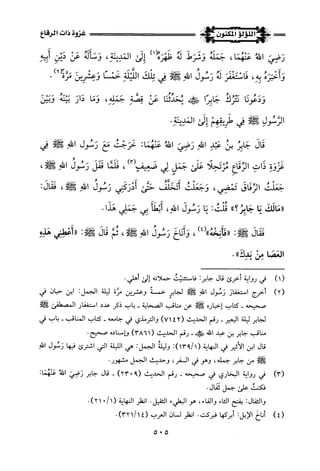 غزوة ذات الرقاع
اللؤلؤ المكنون
رَضِيَ اللهُ عَنْهُمَا، جَمَلَهُ وَشَرَطَ لَهُ ظَهْرَهُ(١) إِلَى المَدِينَةِ، وَسَأَلَهُ عَنْ دَيْنِ أَبِيهِ
وَأَخْبَرَهُ بِهِ، فَاسْتَغْفَرَ لَهُ رَسُولُ اللهِ ﷺ فِي تِلْكَ اللَّيْلَةِ خَمْسًا وَعِشْرِينَ مَرَّةً(٢).
وَدَعُونَا نَتْرُكُ جَابِرًا ﷺ يُحَدِّثُنَا عَنْ قِصَّةِ جَمَلِهِ، وَمَا دَارَ بَيْنَهُ وَبَيْنَ
الرَّسُولِ ﷺ فِي طَرِيقِهِمْ إِلَى المَدِينَةِ.
قَالَ جَابِرُ بنُ عَبْدِ اللهِ رَضِيَ اللهُ عَنْهُمَا: خَرَجْتُ مَعَ رَسُولِ اللهِ ﷺ فِي
غَزْوَةِ ذَاتِ الرِّقَاعِ مُرْتَحِلًا عَلَى جَمَلٍ لِي ضَعِيفٍ(٣)، فَلَمَّا قَفَلَ رَسُولُ اللهِ ﷺ،
جَعَلَتْ الرِّفَاقُ تَمْضِي، وَجَعَلْتُ أَتَخَلَّفُ حَتَّى أَدْرَكَنِي رَسُولُ اللهِ ﷺ، فَقَالَ:
«مَالَكَ يَا جَابِرُ؟» قُلْتُ: يَا رَسُولَ اللهِ، أَبْطَأَ بِي جَمَلِي هَذَا.
فَقَالَ ﷺ: «فَأَنِخْهُ»(٤)، وَأَنَاخَ رَسُولُ اللهِ ﷺ، ثُمَّ قَالَ ﷺ: «أَعْطِنِي هَذِهِ
العَصَا مِنْ يَدِكَ».
(١) في رواية أخرى قال جابر: فاستثنيتُ حملانه إلى أهلي.
(٢) أخرج استغفارَ رَسُولِ اللهِ ﷺ لجابرٍ خمسةً وعشرين مرَّة ليلة الجمل: ابن حبان في
صحيحه ـ كتاب إخباره ﷺ عن مناقب الصحابة ـ باب ذكر عدد استغفار المصطفى ﷺ
لجابر ليلة البعير ـ رقم الحديث (٧١٤٢) والترمذي في جامعه ـ كتاب المناقب ـ باب في
مناقب جابر بن عبد الله ﷺ ـ رقم الحديث (٣٨٦١) وإسناده صحيح.
قال ابن الأثير في النهاية (١٣٩/١): وليلةُ الجمل: هي الليلة التي اشترى فيها رسُول اللهِ
ﷺ من جابر جمله، وهو في السفر، وحديث الجمل مشهور.
(٣) في رواية البخاري في صحيحه ـ رقم الحديث (٢٣٠٩) ـ قال جابر رَضِيَ اللهُ عَنْهُمَا:
فكنتُ على جمل ثَفَال.
والثفال: بفتح الثاء والفاء، هو البطيء الثقيل. انظر النهاية (٢١٠/١).
(٤) أناخَ الإبلَ: أبركها فبركت. انظر لسان العرب (٣٢١/١٤).
٥٠٥